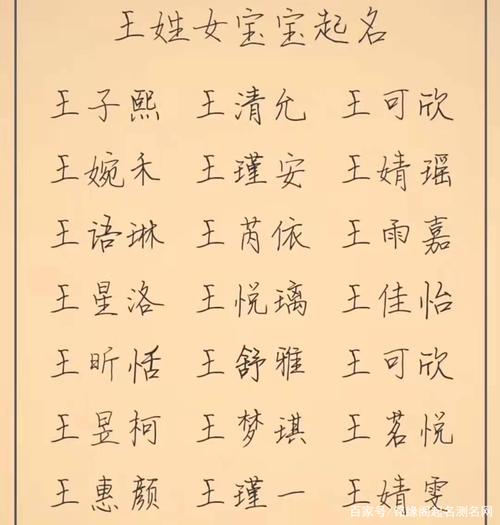 王姓女宝宝起名
王子熙 王清允 王可欣
王婉禾 王瑾安 王婧瑶
王语琳 王芮依 王雨嘉
王星洛 王悦璃 王佳怡
王昕恬 王舒雅 王可欣
王昱柯 王梦琪 王茗悦
王惠颜 王瑾一 王婧雯
百家号/锦缘阁起名测名网